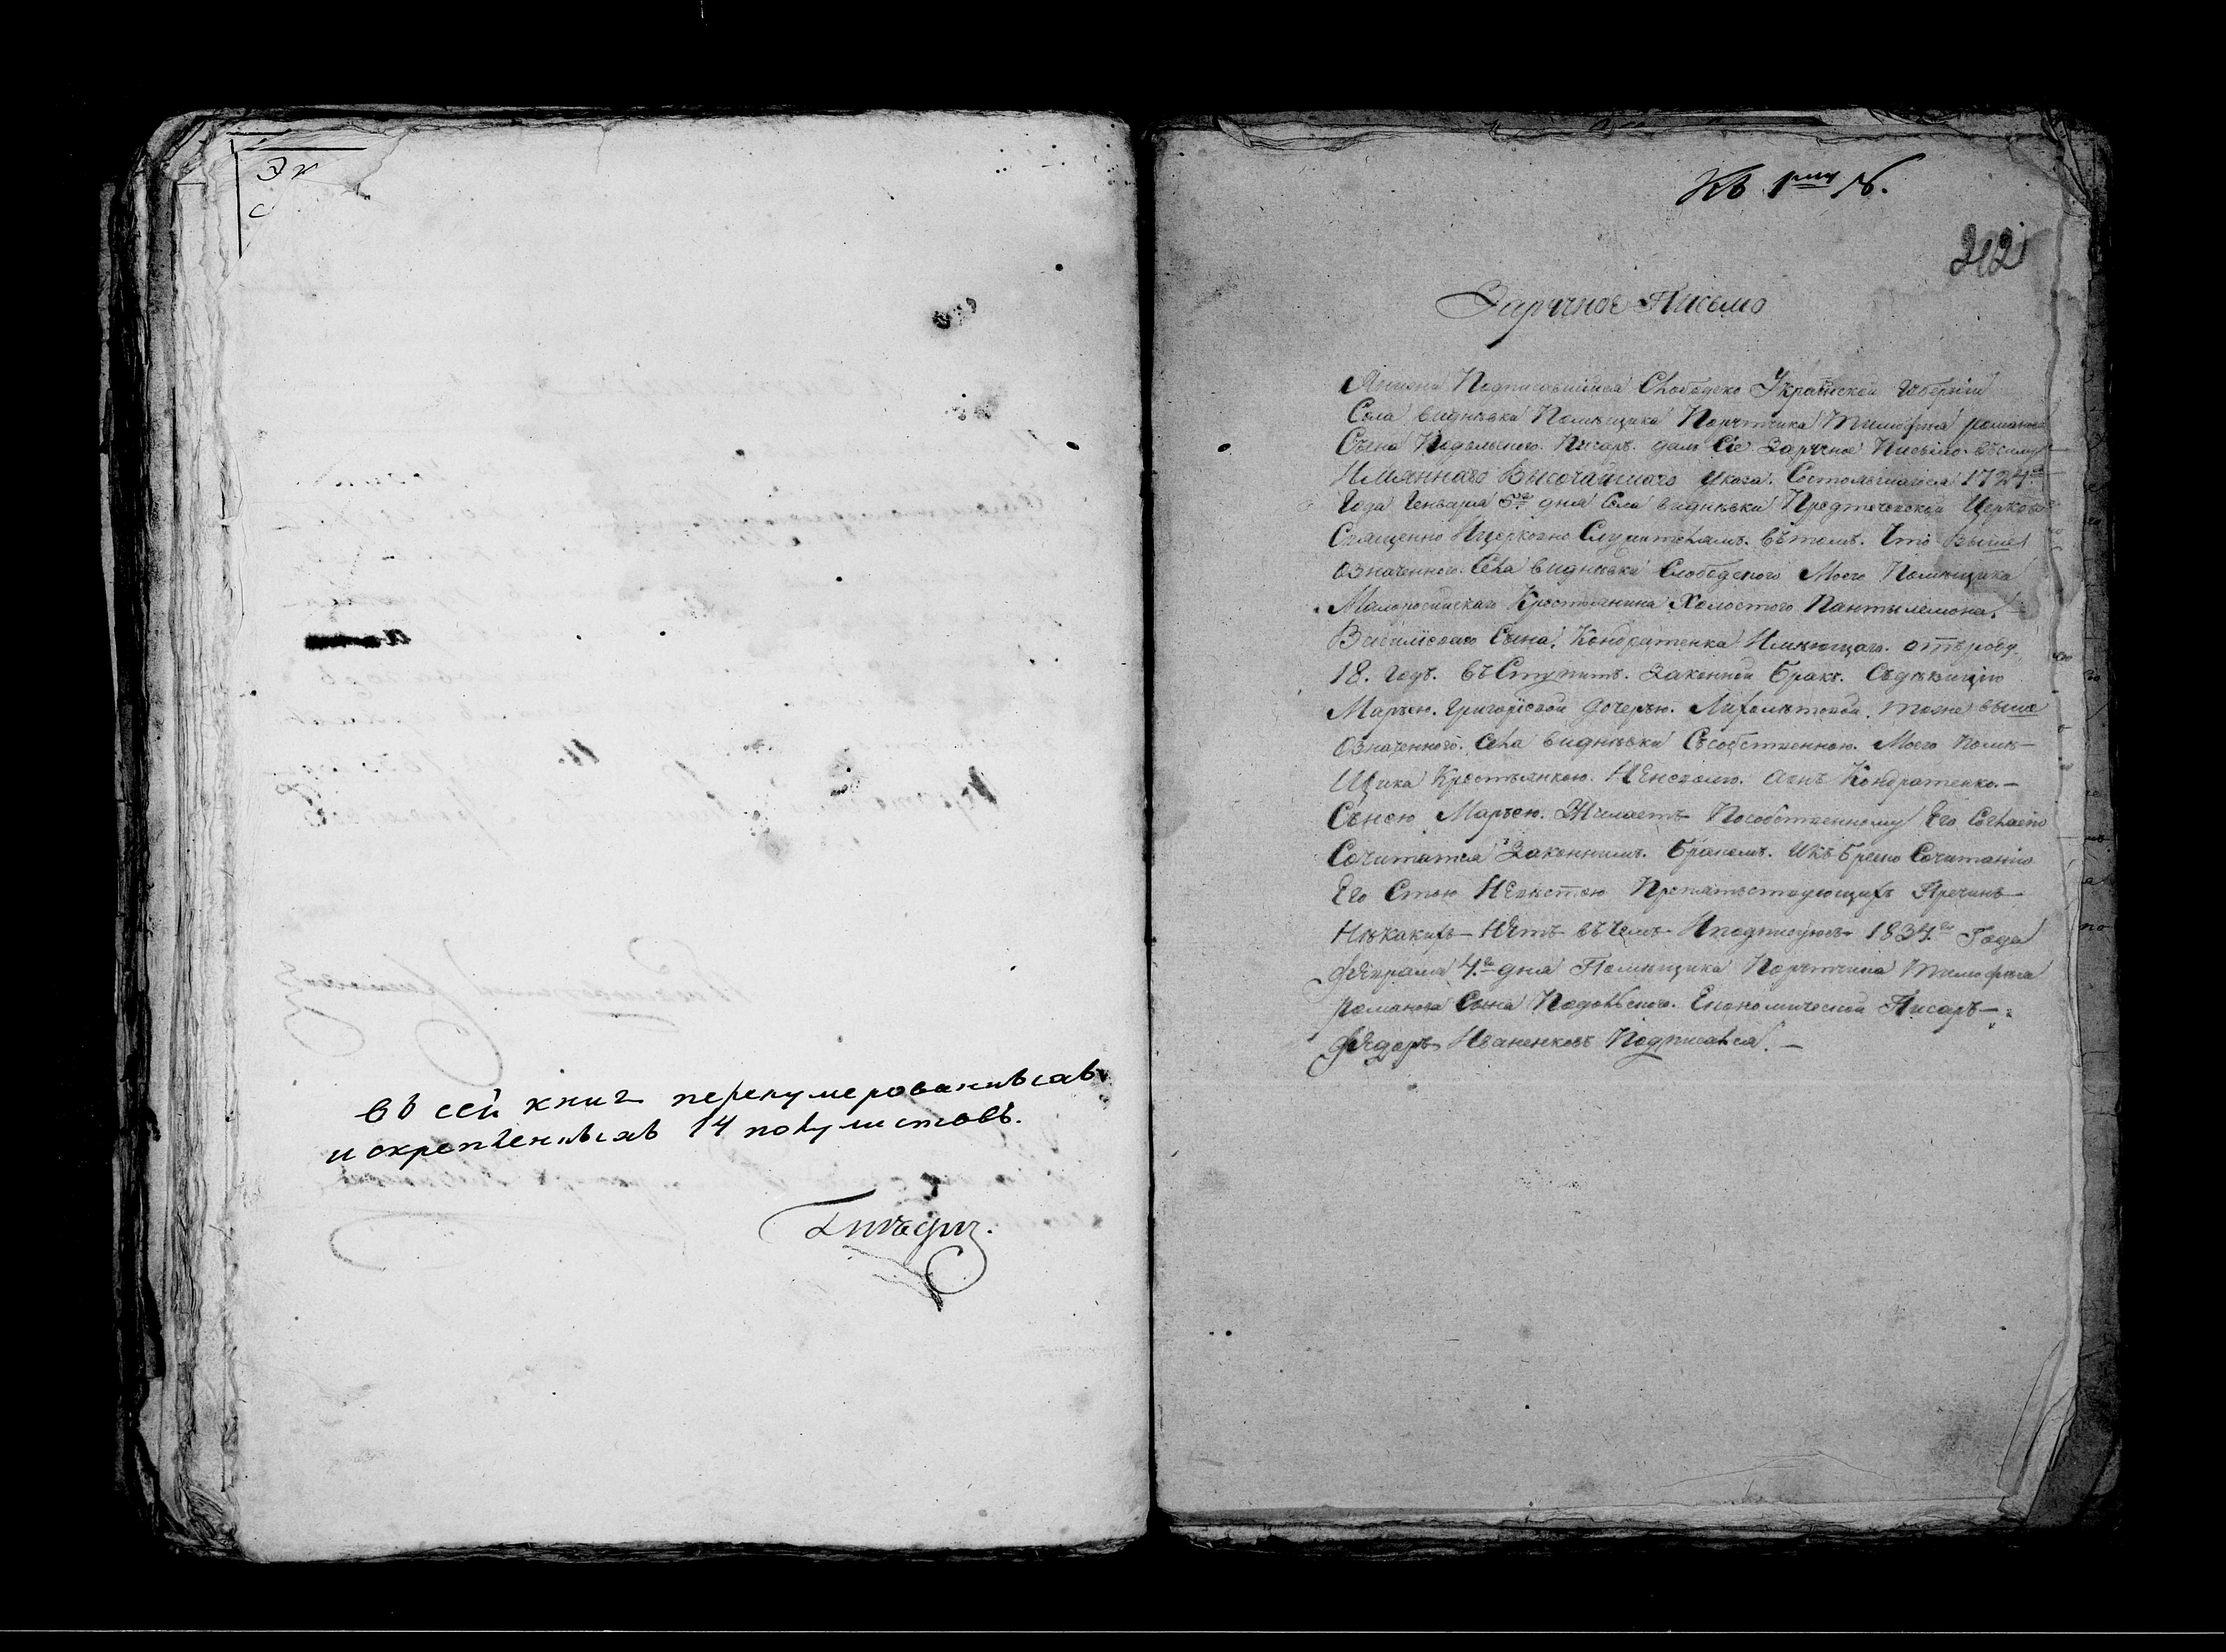 въ сей книг перенумерованныхъ
и скрепленныхъ 14 полулистовъ.
Къ 1му №.
212
Заручное Письмо
Подписавшийся Слободско Украинской Губернии
Села виднѣвки Помѣщика Порутчика Тимофѣя романова
Сына Подольского. Писарь. далъ Сіе Заручное Письмо. въ силу
Имяннаго Высочайшаго Указа. Состоявшагося 1724го
Года Генваря 5го дня Села виднѣвки Предтеченской Церкви
Священно Ицерковно Служителямъ. вътомъ. Что Выше
означенного. Села виднѣвки Слободского Моего Помѣщика
Малоросийскаго Крестьянина Холостого Пантылемона.
Василіеваго Сына. Кондратенка Имѣющаго. отъроду.
18. годъ. въСтупить. Законной бракъ. Съдѣвицѣю
Маръею. Григоріевой дочерью. Лихолѣтовой. тогже выше
означенного. Села виднѣвки Съсобственною. Моего помѣ-
Щика Крестьянкою. Кондратенко.-
Съною Маръею. Желаетъ Пособственному Его Согласію
Сочитатся Законнимъ. бракомъ. Икъ Сочитанію
Его Стою НЕвѣстою Препятъствующихъ Пречинъ-
Нѣкакихъ- НѢтъ въЧемъ Иподписуюсь 1834го Года
фЕврала 4го дня Помѣщика Порутчика Тимофѣя
романова Сына Подольского. Економической Писарь-
фЕдоръ Иваненковъ Подписался.-